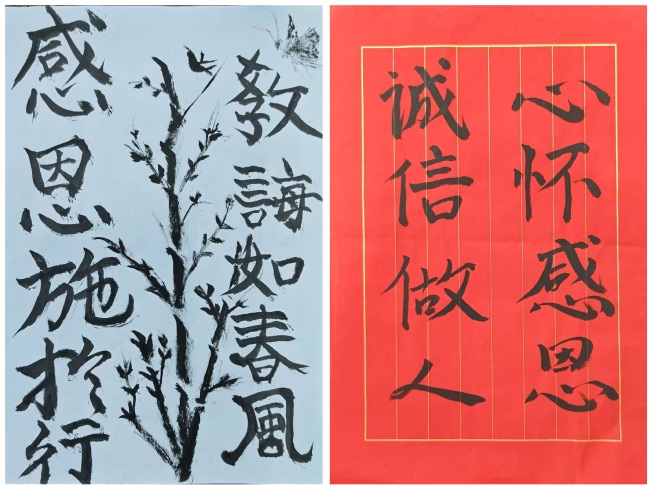 教誨如春風
感恩施於行
心怀感恩
誠信做人